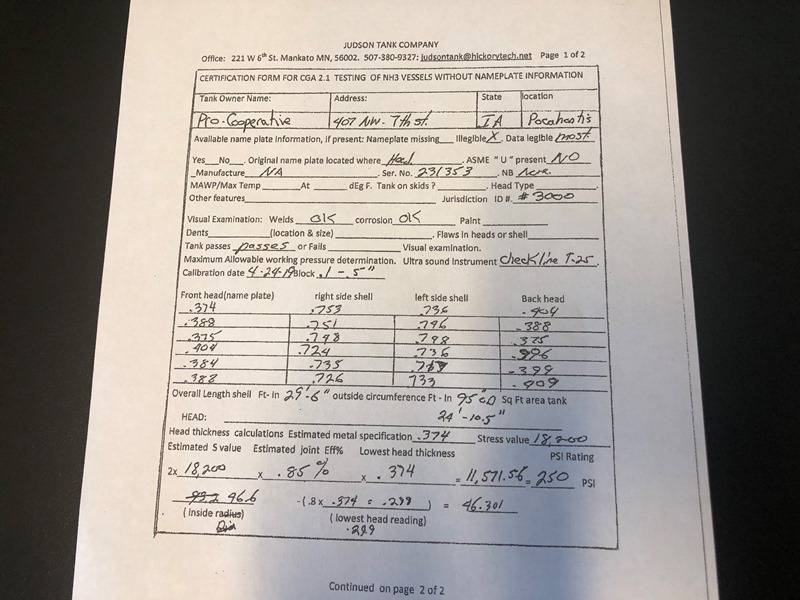 JUDSON TANK COMPANY
Office: 221 W 6th St. Mankato MN, 56002. 507-380-9327: judsontank@hickorytech.net Page 1 of 2
CERTIFICATION FORM FOR CGA 2.1 TESTING OF NH3 VESSELS WITHOUT NAMEPLATE INFORMATION
Tank Owner Name: Address: State location
Pro-Cooperative 407 NW. 7th St. IA
Available name plate information, if present: Nameplate missing___ Illegible X, Data legible most.
Yes___No___. Original name plate located where Head. ASME "U" present NO
Manufacture NA. Ser. No. 231353. NB None.
MAWP/Max Temp______At ______dEg F. Tank on skids ?________. Head Type________.
Other features____ Jurisdiction ID #. #3000
Visual Examination: Welds OK corrosion OK Paint____
Dents_______(location & size)________. Flaws in heads or shell________.
Tank passes passes or Fails________Visual examination.
Maximum Allowable working pressure determination. Ultra sound Instrument Checkline T-25.
Calibration date 4-24-19 Block .1 - .5"
Front head(name plate) right side shell left side shell Back head
.374 .753 .736 .404
.388 .751 .746 .388
.375 .748 .748 .375
.404 .724 .736
.384 .735 .399
.388 .726 733 .409
Overall Length shell Ft- In 29'-6" outside circumference Ft - In 95" OD Sq Ft area tank
24'-10.5"
HEAD:
Head thickness calculations Estimated metal specification .374 Stress value 18,200
Estimated S value Estimated joint Eff% Lowest head thickness PSI Rating
2x 18,200 x .85 % x .374 = 11,571.56 = 250 PSI
93.2 96.6 -(.8 x .374 = .299) = 46.301
(inside radius) (lowest head reading)
Dia .299
Continued on page 2 of 2